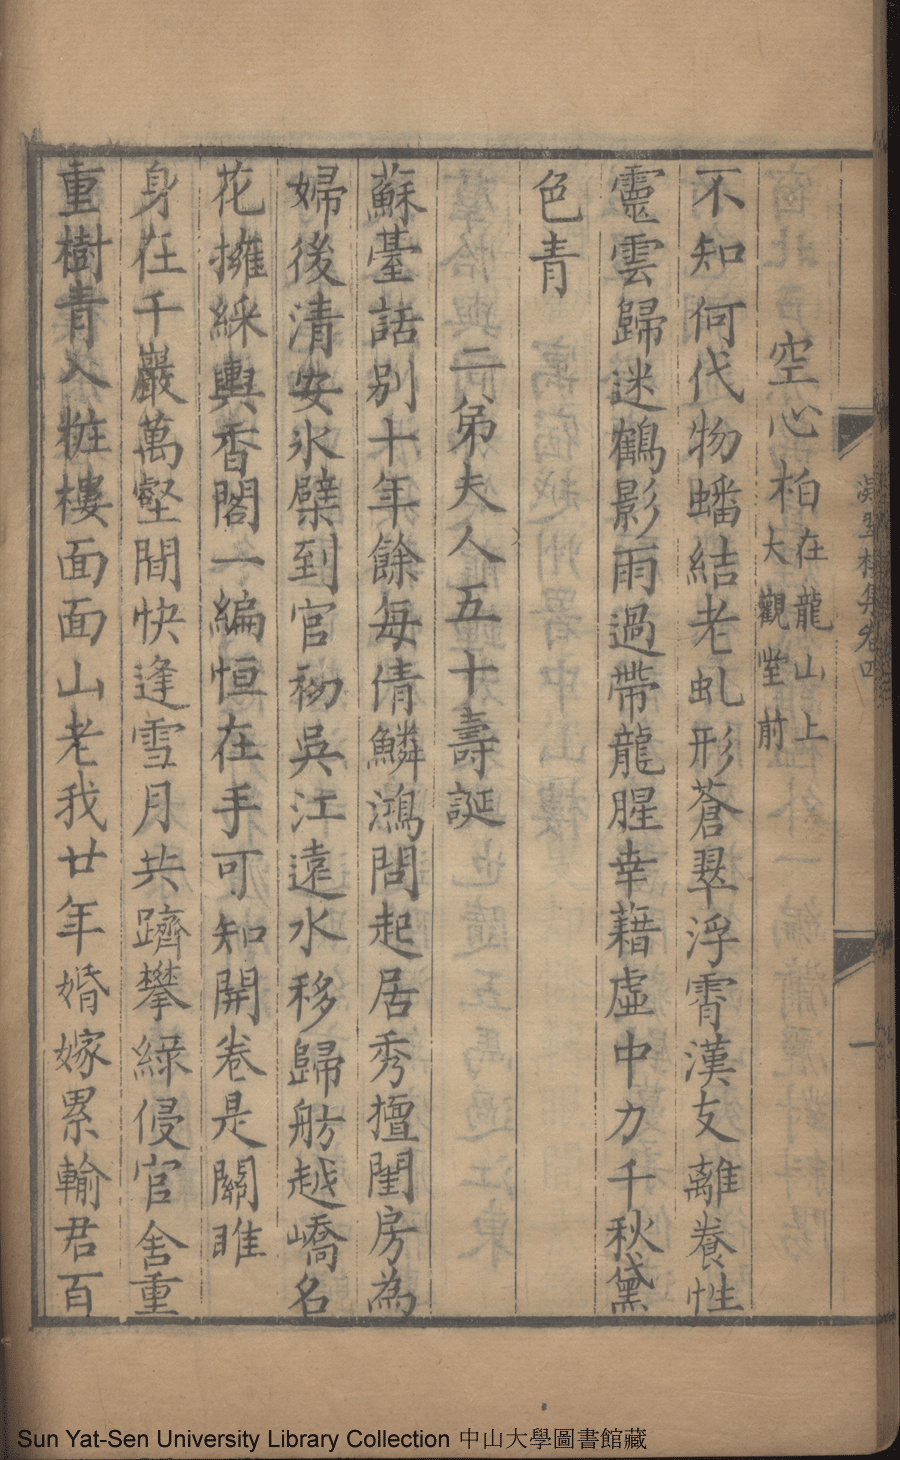 空心柏在龍山上大觀堂前
不知何代物蟠結老虬形蒼翠浮霄漢支離養性
靈雲歸迷鶴影雨過帶龍腥幸藉虛中力千秋黛
色青
二弟夫人五十壽誕
蘇臺話別十年餘每倩鱗鴻問起居秀擅閨房為
婦後清安氷檗到官初吳江遠水移歸舫越嶠名
花擁綵輿香閣一編恒在手可知開卷是關雎
身在千巖萬壑間快逢雪月共躋攀綠侵官舍重
重樹青入粧樓面面山老我廿年婚嫁累輸君百
凝翠樓集卷四
一
Sun Yat-Sen University Library Collection 中山大學圖書館藏